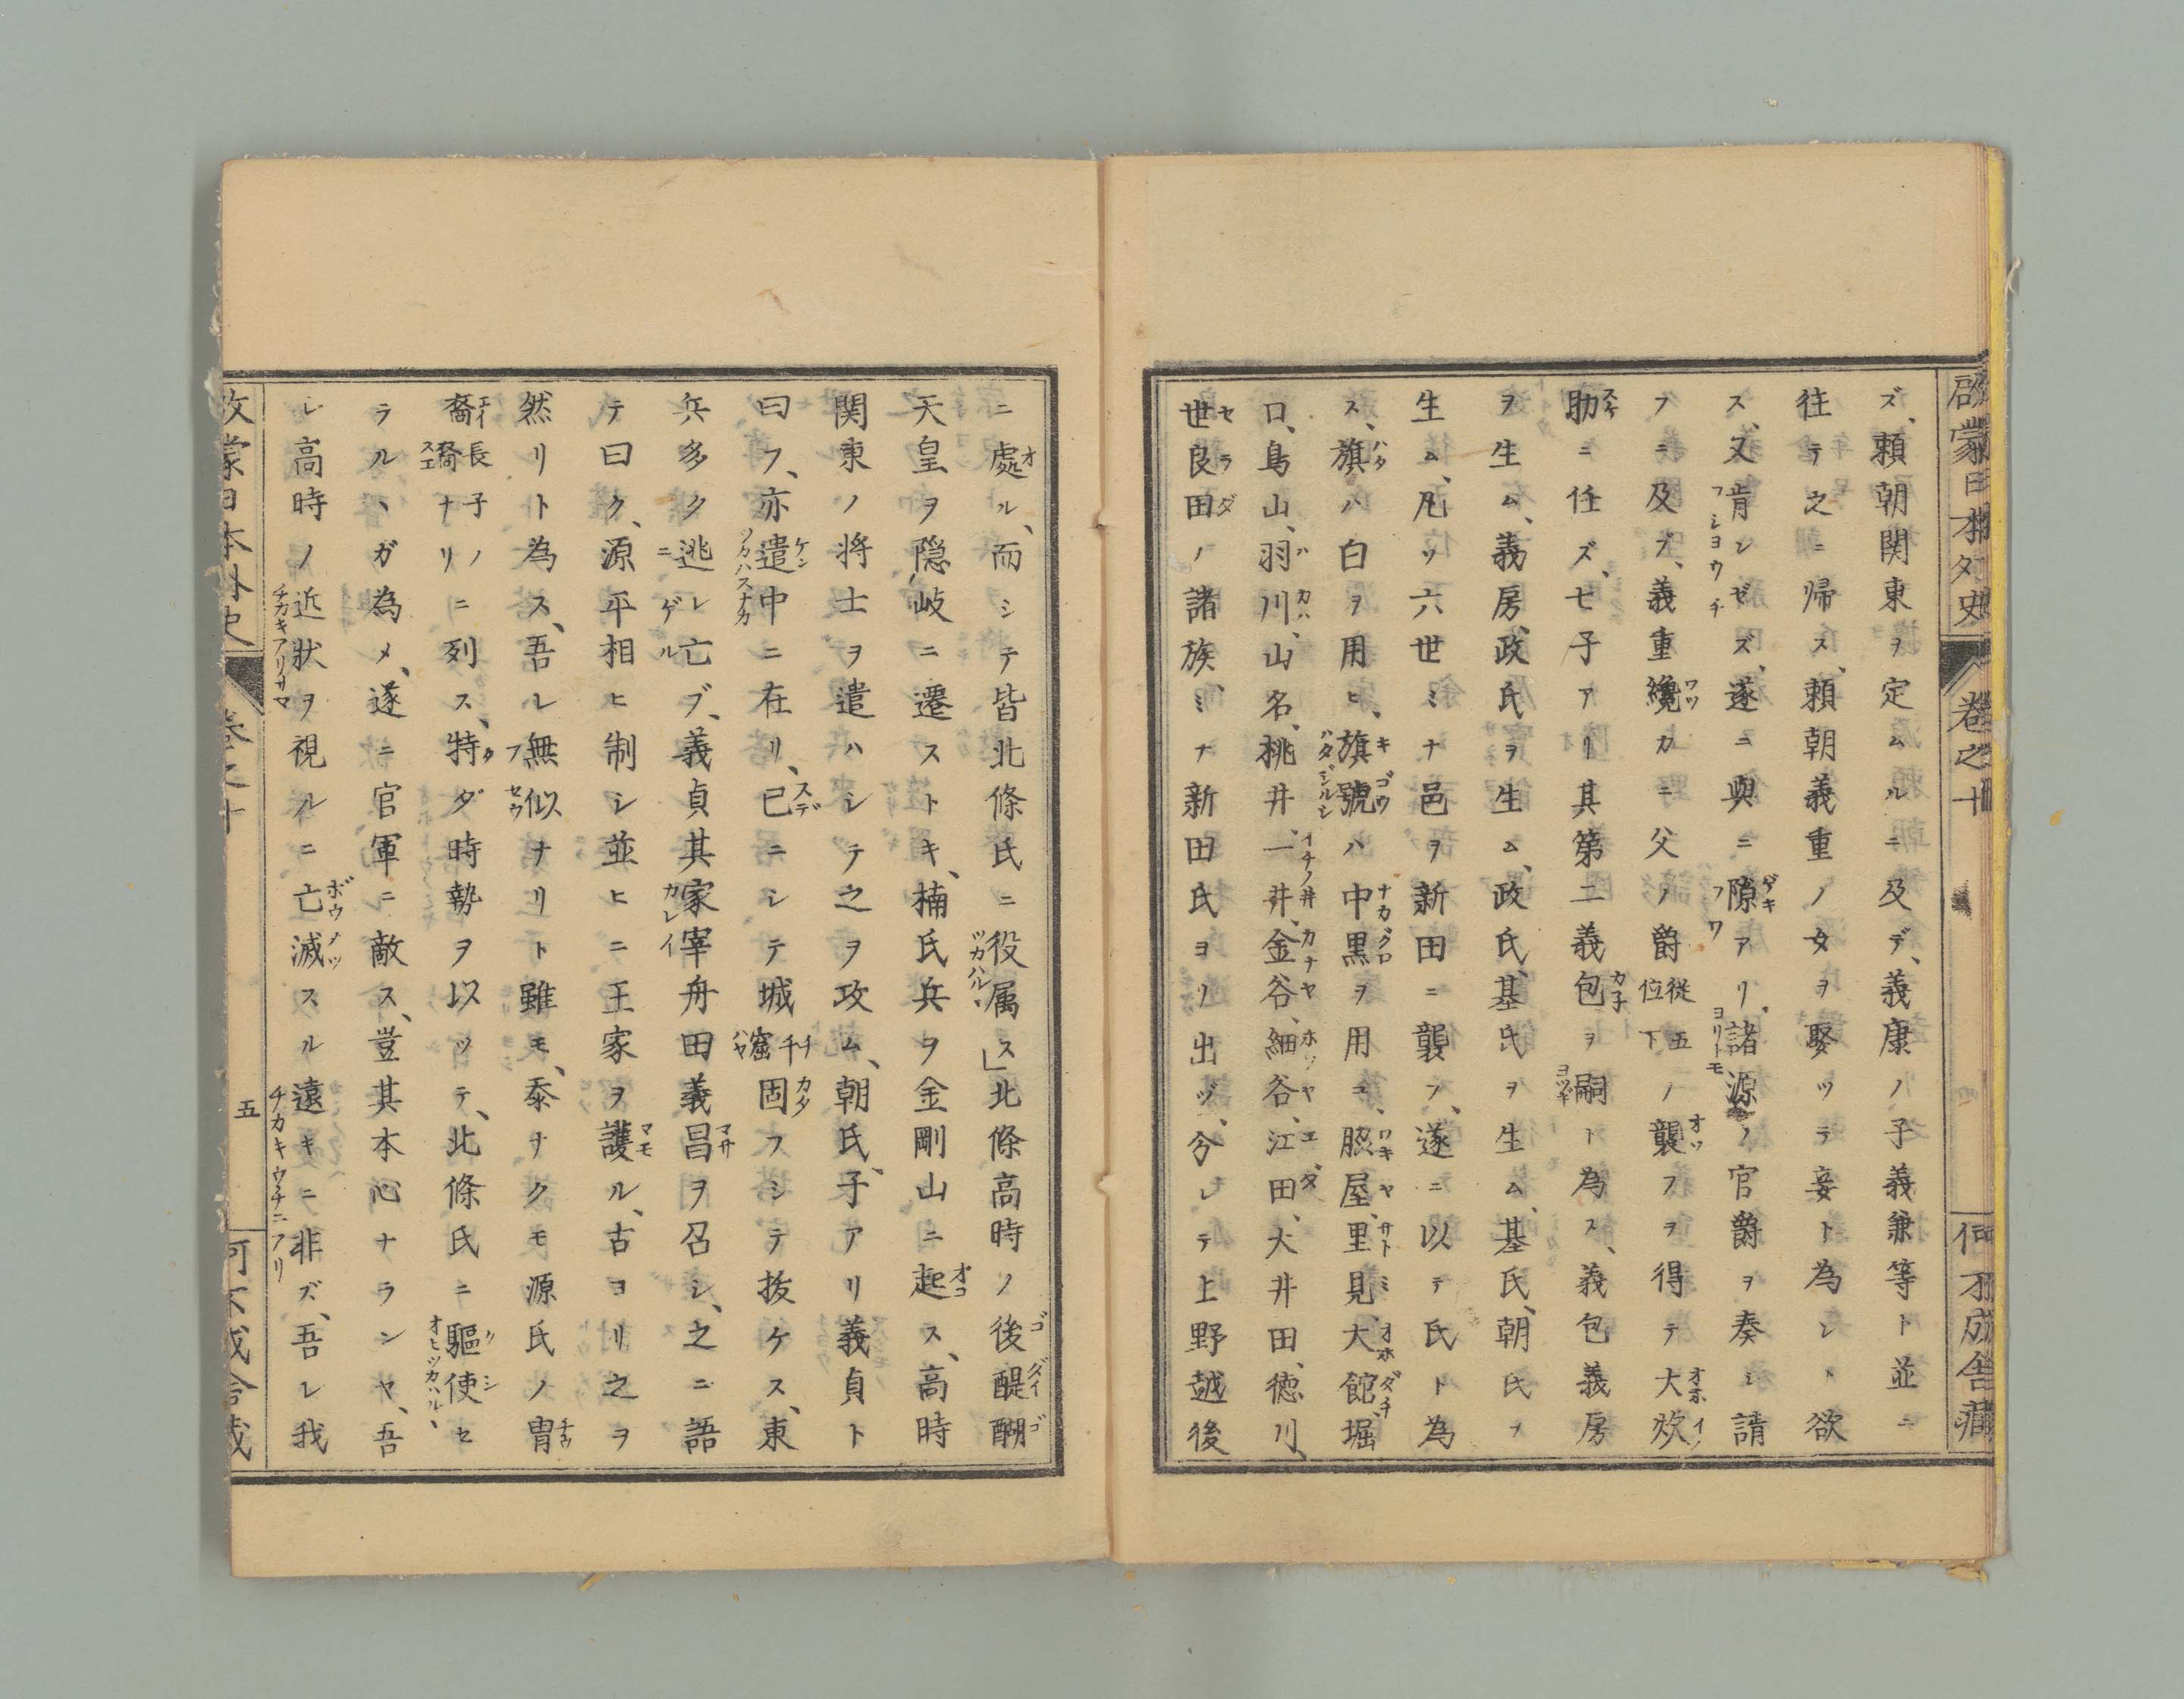 啓蒙日本外史 卷之十 何不成舎藏
ズ、頼朝関東ヲ定ムルニ及デ、義康ノ子義兼等ト並ニ
往テ之ニ帰ス、頼朝義重ノ女ヲ娶ツテ妾ト為レト欲
ス、又肯ンゼズ、遂ニ與ニ隙アリ、諸源ノ官爵ヲ奏シ請
フニ及ブ、義重纔カニ父ノ爵從五位下ノ襲フヲ得テ大炊
助ニ任ズ、七子アリ其第二義包ヲ嗣ト為ス、義包義房
ヲ生ム、義房、政氏ヲ生ム、政氏、基氏ヲ生ム、基氏、朝氏ヲ
生ム、凡ソ六世ミナ邑ヲ新田ニ襲フ、遂ニ以テ氏ト為
ス、旗ハ白ヲ用ヒ、旗號ハ中黒ヲ用ユ、脇屋、里見、大館、堀
口、鳥山、羽川、山名、桃井、一井、金谷、細谷、江田、大井田、徳川、
世良田ノ諸族、ミナ新田氏ヨリ出ヅ、分レテ上野越後
ニ處ル、而シテ皆北條氏ニ役属ス」北條高時ノ後醍醐
天皇ヲ隠岐ニ遷ストキ、楠氏兵ヲ金剛山ニ起ス、高時
関東ノ将士ヲ遣ハシテ之ヲ攻ム、朝氏、子アリ義貞ト
曰フ、亦遣中ニ在リ、已ニシテ城千窟固フシテ抜ケス、東
兵多ク逃レ亡ブ、義貞其家宰舟田義昌ヲ召シ、之ニ語
テ曰ク、源平相ヒ制シ並ヒニ王家ヲ護ル、古ヨリ之ヲ
然リト為ス、吾レ無似ナリト雖モ、忝ナクモ源氏ノ冑
裔長子裔ナリノニ列ス、特ダ時勢ヲ以ツテ、北條氏ニ驅使セ
ラルヽガ為メ、遂ニ官軍ニ敵ス、豈其本心ナランヤ、吾
レ高時ノ近狀ヲ視ルニ亡滅スル遠キニ非ズ、吾レ我
啓蒙日本外史 卷之十 五 何不成舎藏